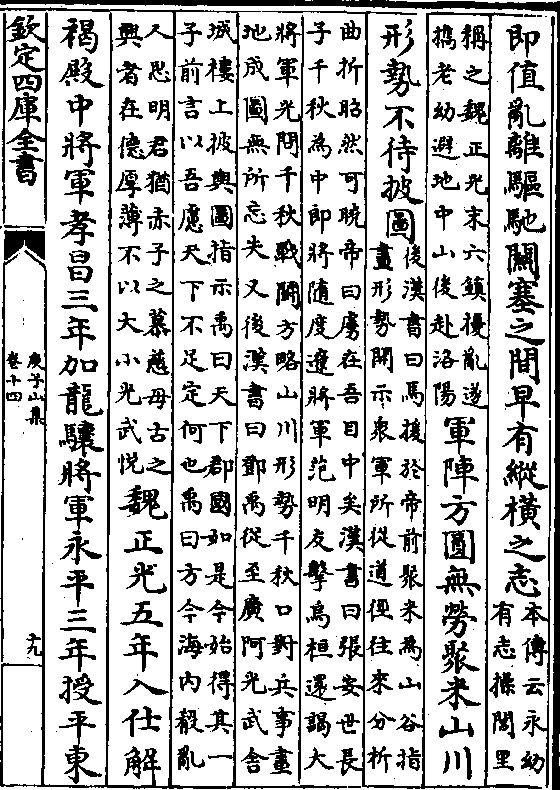 即值亂離驅馳關塞之間早有縱橫之志本傳云永幼
有志操閭里
稱之魏正光末六鎮擾亂遂
攜老幼避地中山後赴洛陽軍陣方圓無勞聚米山川
形勢不待披圖後漢書曰馬援於帝前聚米爲山谷指
畫形勢開示衆軍所從道徑往來分析
曲折昭然可曉帝曰虜在吾目中矣漢書曰張安世長
子千秋為中郎將隨度遼將軍范明友擊烏桓還謁大
將軍光問千秋戰鬬方略山川形勢千秋口對兵事畫
地成圖無所忘失又後漢書曰鄧禹從至廣阿光武舍
城樓上披輿圖指示禹曰天下郡國如是今始得其一
子前言以吾慮天下不足定何也禹曰方今海内殽亂
人思明君猶赤子之慕慈母古之
興者在德厚薄不以大小光武悦魏正光五年入仕解
褐殿中將軍孝昌三年加龍驤將軍永平三年授平東
欽定四庫全書
庾子山集
卷十四
十九